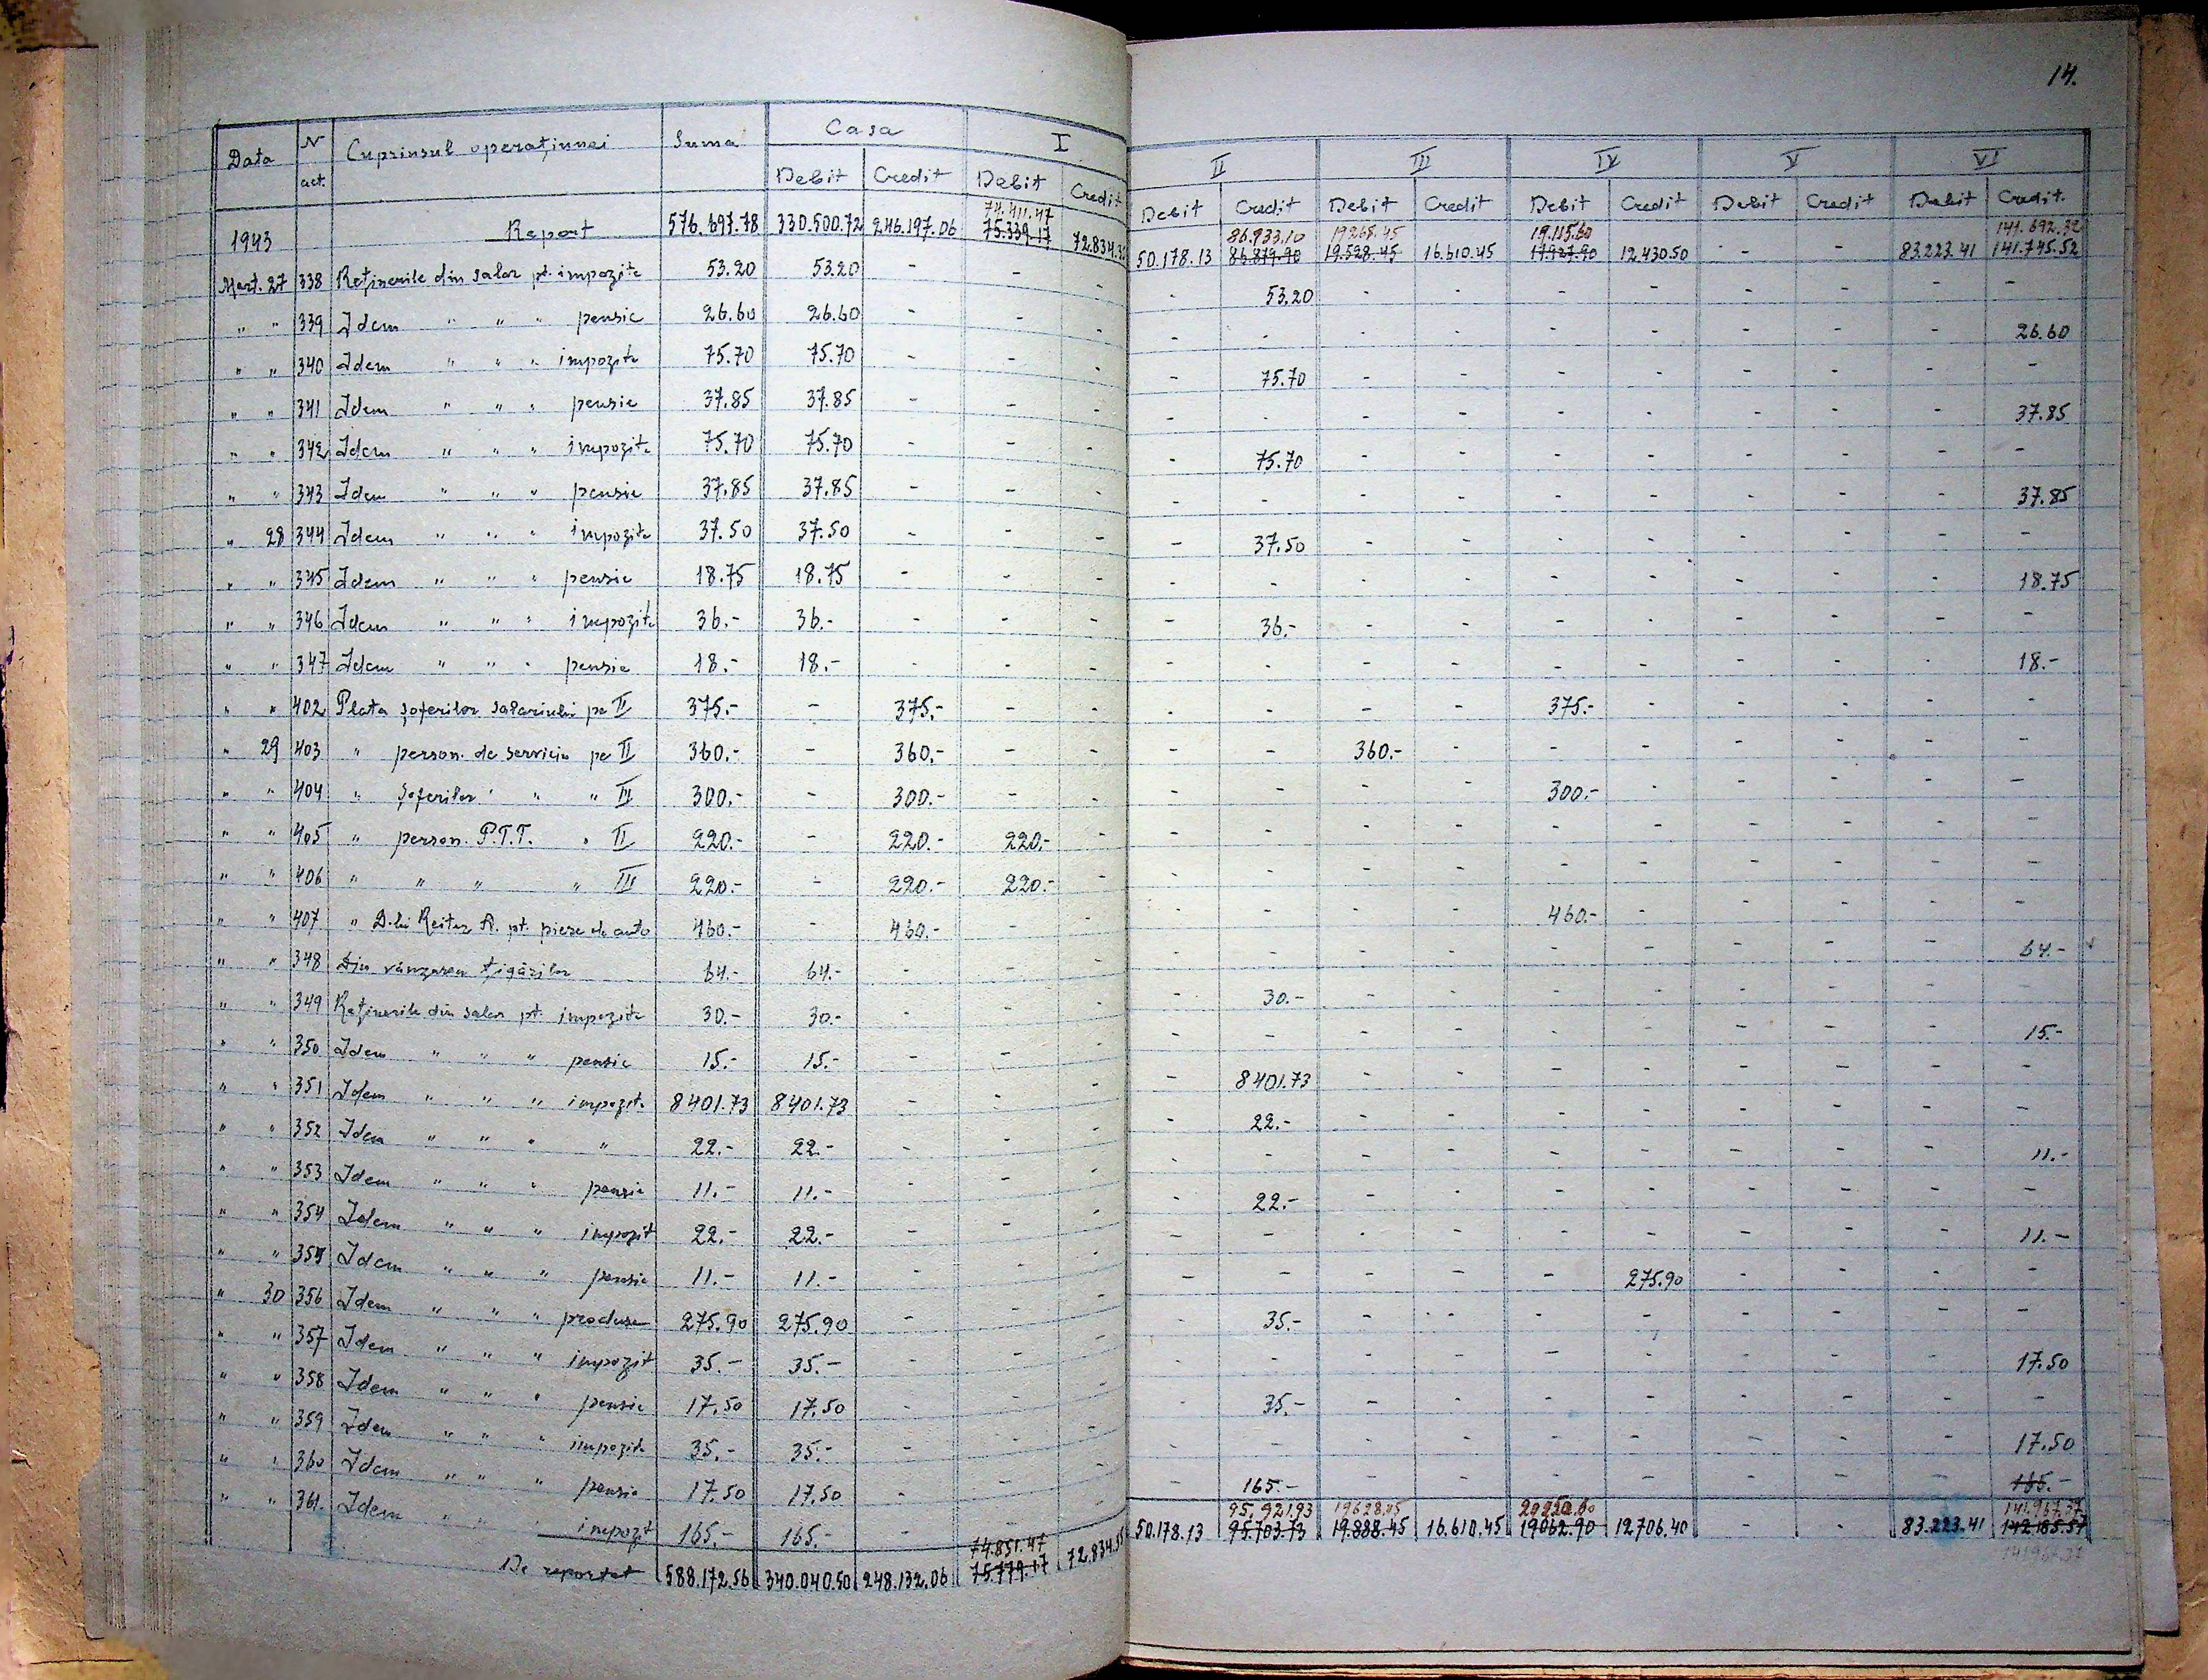 14.
Data N act. Cuprinsul operațiunei Suma Casa Debit Credit I Debit Credit II Debit Credit III Debit Credit IV Debit Credit V Debit Credit VI Debit Credit.
74.411.47 86.933.10 19265.45 19.115.60 141.692.32
1943 Report 576.697.78 330.500.72 246.197.06 75.339.17 72.834.35 50.178.13 86.879.90 19.528.45 16.610.45 17.927.90 12.430.50 - - 83.223.41 141.745.52
Mart. 27 338 Reținerile din salar pt. impozite 53.20 53.20 - - - - 53.20 - - - - - - - -
" " 339 Idem " " " pensie 26.60 26.60 - - - - - - - - - - - - 26.60
" " 340 Idem " " " impozite 75.70 75.70 - - - - 75.70 - - - - - - - -
" " 341 Idem " " " pensie 37.85 37.85 - - - - - - - - - - - - 37.85
" " 342 Idem " " " impozite 75.70 75.70 - - - - 75.70 - - - - - - - -
" " 343 Idem " " " pensie 37.85 37.85 - - - - - - - - - - - - 37.85
" 28 344 Idem " " " impozite 37.50 37.50 - - - - 37.50 - - - - - - - -
" " 345 Idem " " " pensie 18.75 18.75 - - - - - - - - - - - - 18.75
" " 346 Idem " " " impozite 36.- 36.- - - - - 36.- - - - - - - - -
" " 347 Idem " " " pensie 18.- 18.- - - - - - - - - - - - - 18.-
" " 402 Plata șoferilor salariului pe II 375.- - 375.- - - - - - - 375.- - - - - -
" 29 403 " person. de serviciu pe II 360.- - 360.- - - - - 360.- - - - - - - -
" " 404 " Șoferilor " " " III 300.- - 300.- - - - - - - 300.- - - - - -
" " 405 " person. P.T.T. " II 220.- - 220.- 220.- - - - - - - - - - - -
" " 406 " " " " III 220.- - 220.- 220.- - - - - - - - - - - -
" " 407 " D-lui Reiter A. pt. piese de auto 460.- - 460.- - - - - - - 460.- - - - - -
" " 348 Din vânzarea țigărilor 64.- 64.- - - - - - - - - - - - - 64.-
" " 349 Reținerile din salar pt. impozite 30.- 30.- - - - - 30.- - - - - - - - -
" " 350 Idem " " " pensie 15.- 15.- - - - - - - - - - - - - 15.-
" " 351 Idem " " " impozite 8401.73 8401.73 - - - - 8401.73 - - - - - - - -
" " 352 Idem " " " " 22.- 22.- - - - - 22.- - - - - - - - -
" " 353 Idem " " " pensie 11.- 11.- - - - - - - - - - - - - 11.-
" " 354 Idem " " " impozit 22.- 22.- - - - - 22.- - - - - - - - -
" " 355 Idem " " " pensie 11.- 11.- - - - - - - - - - - - - 11.-
" 30 356 Idem " " " produse 275.90 275.90 - - - - - - - - 275.90 - - - -
" " 357 Idem " " " impozit 35.- 35.- - - - - 35.- - - - - - - - -
" " 358 Idem " " " pensie 17.50 17.50 - - - - - - - - - - - - 17.50
" " 359 Idem " " " impozite 35.- 35.- - - - - 35.- - - - - - - - -
" " 360 Idem " " " pensie 17.50 17.50 - - - - - - - - - - - - 17.50
" " 361. Idem " " " impozit 165.- 165.- - - - - 165.- - - - - - - - 165.-
74.851.47 95.921.93 19628.45 141.967.37
De reportat 588.172.56 340.040.50 248.132.06 75.779.17 72.834.35 50.178.13 95.703.73 19.888.45 16.610.45 19062.90 12706.40 - - 83.223.41 142.185.57
141967.37